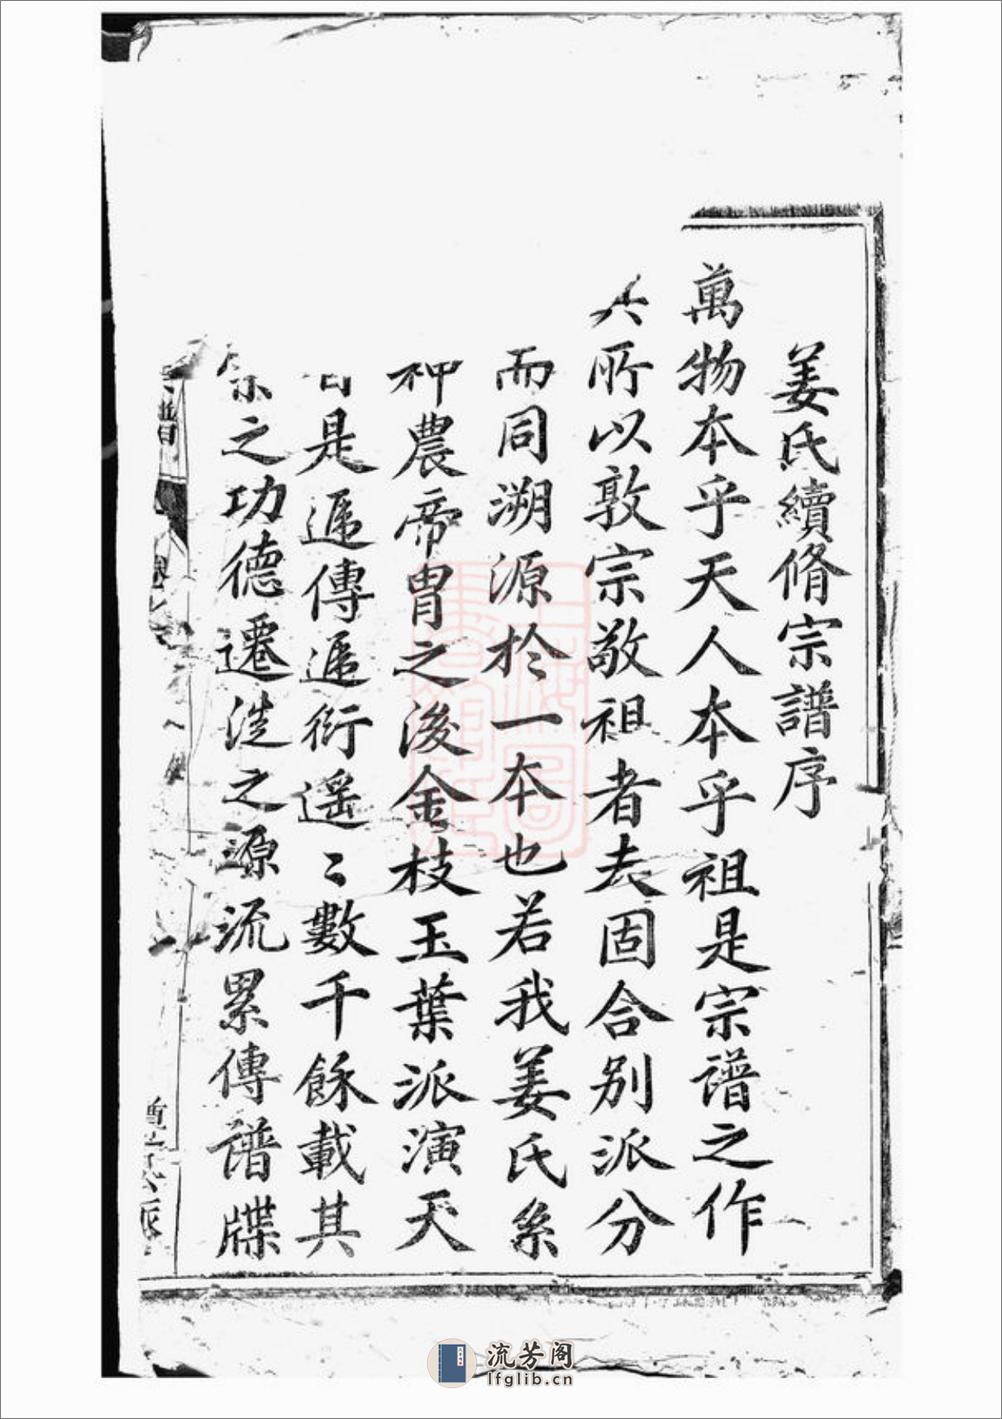 姜氏續脩宗譜序
萬物本乎天人本乎祖是宗譜之作
所以敦宗敬祖者夫固合别派分
而同溯源於一本也若我姜氏系
神農帝胄之後金枝玉葉派演天
是遞傳遞衍遥〻數千餘載其
之功德遷徙之源流累傳譜牒
譜 卷
公派
流芳阁
lfglib.cn